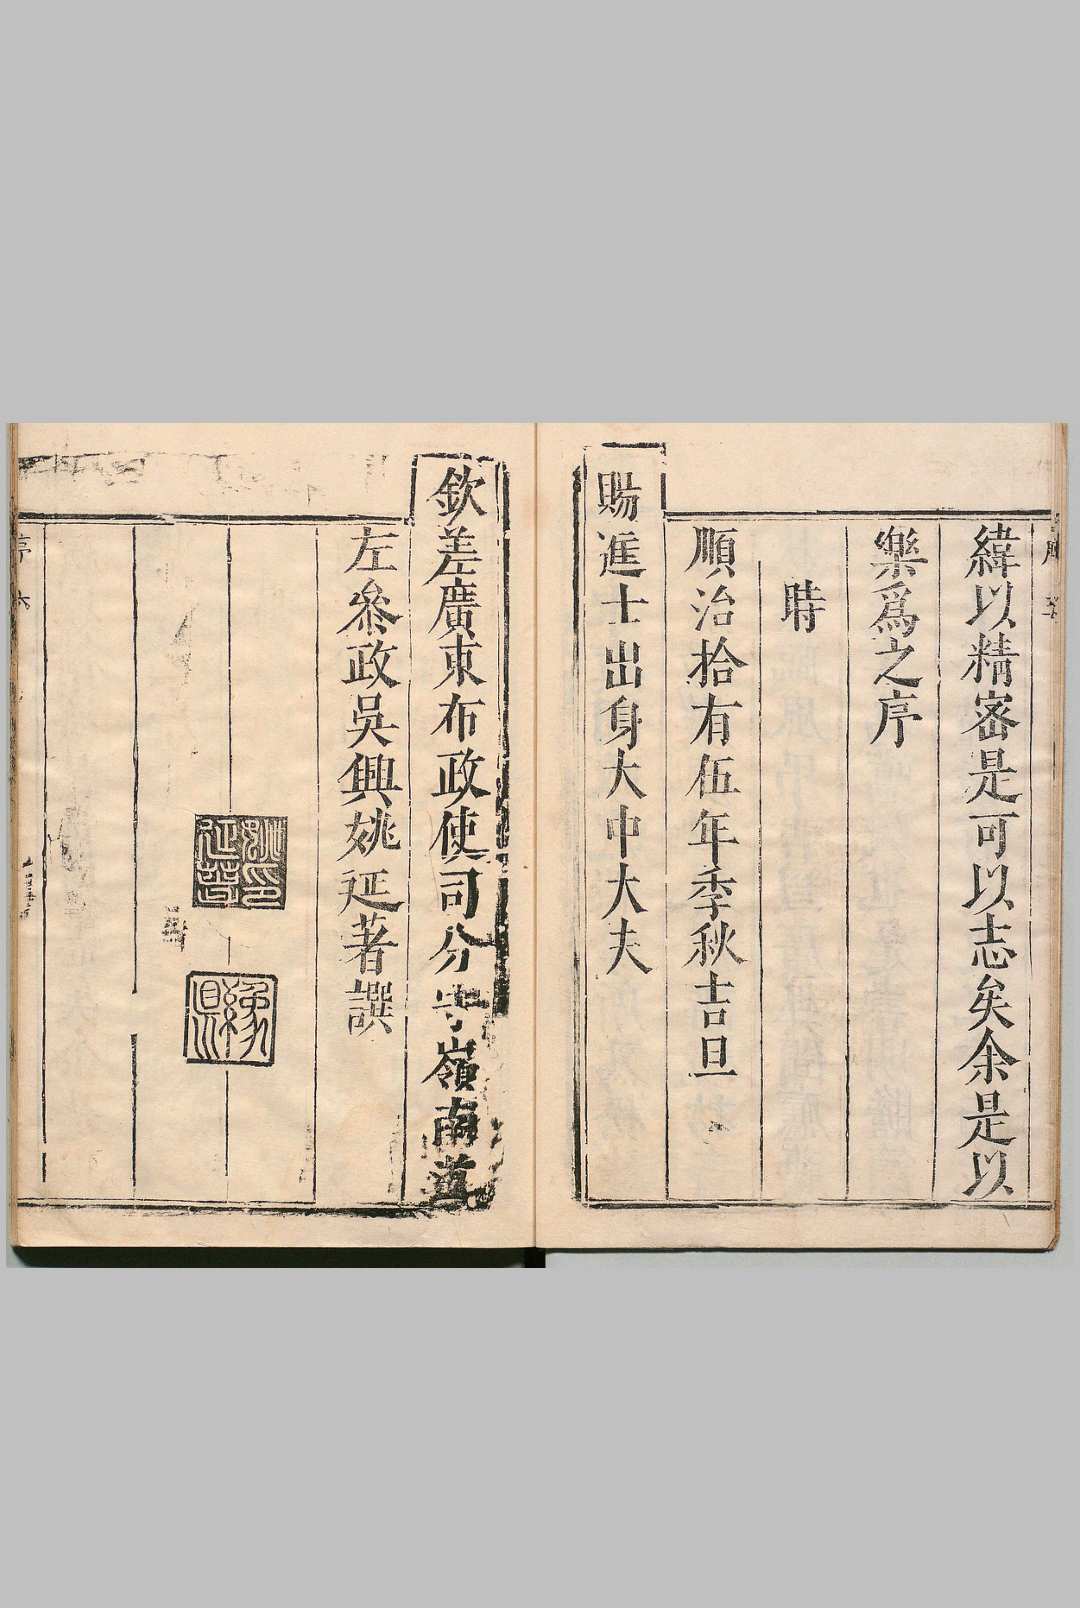 緯以精密是可以志矣余是以
樂爲之序
時
順治拾有伍年季秋吉旦
賜進士出身大中大夫
欽差廣東布政使司分守嶺南道
左參政吳興姚延著譔
姚延著印